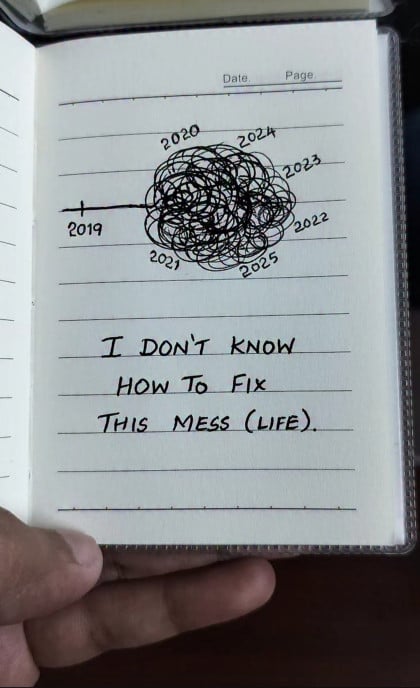 Date. Page.
2020
2024
2023
2019
2022
2021
2025
I DON'T KNOW
HOW TO FIX
THIS MESS (LIFE).